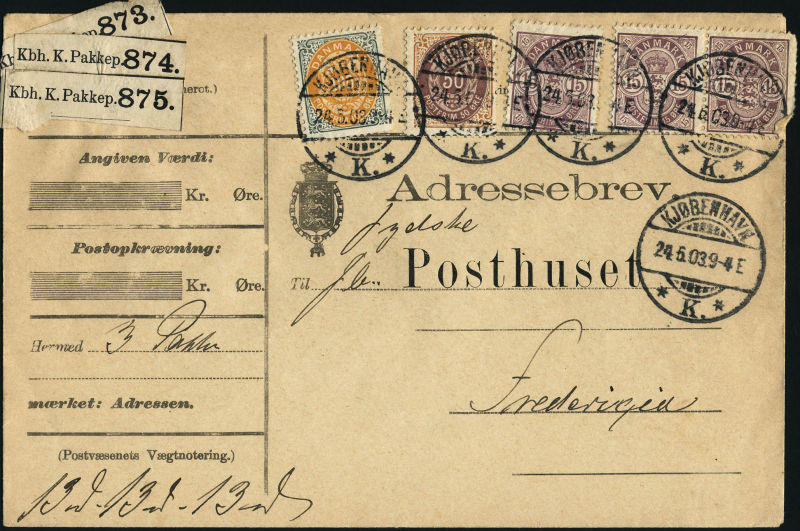 873.
Kbh. K. Pakkep. 874.
Kbh. K. Pakkep. 875.
DANMARK
KJØBENHAVN
24.5.03.9-4 E
K.
50
KJØBENHAVN
K.
15 15
KJØBENHAVN
24.5.03.9-4 E
K.
DANMARK
15 15
DANMARK
15 15
KJØBENHAVN
24.5.03.9-4 E
K.
Angiven Værdi:
Kr. Øre.
Postopkrævning:
Kr. Øre.
Hermed 3 Pakker
mærket: Adressen.
(Postvæsenets Vægtnotering.)
13 - 13 - 13
Adressebrev.
Jydske
Til Posthuset
Fredericia
KJØBENHAVN
24.5.03.9-4 E
K.